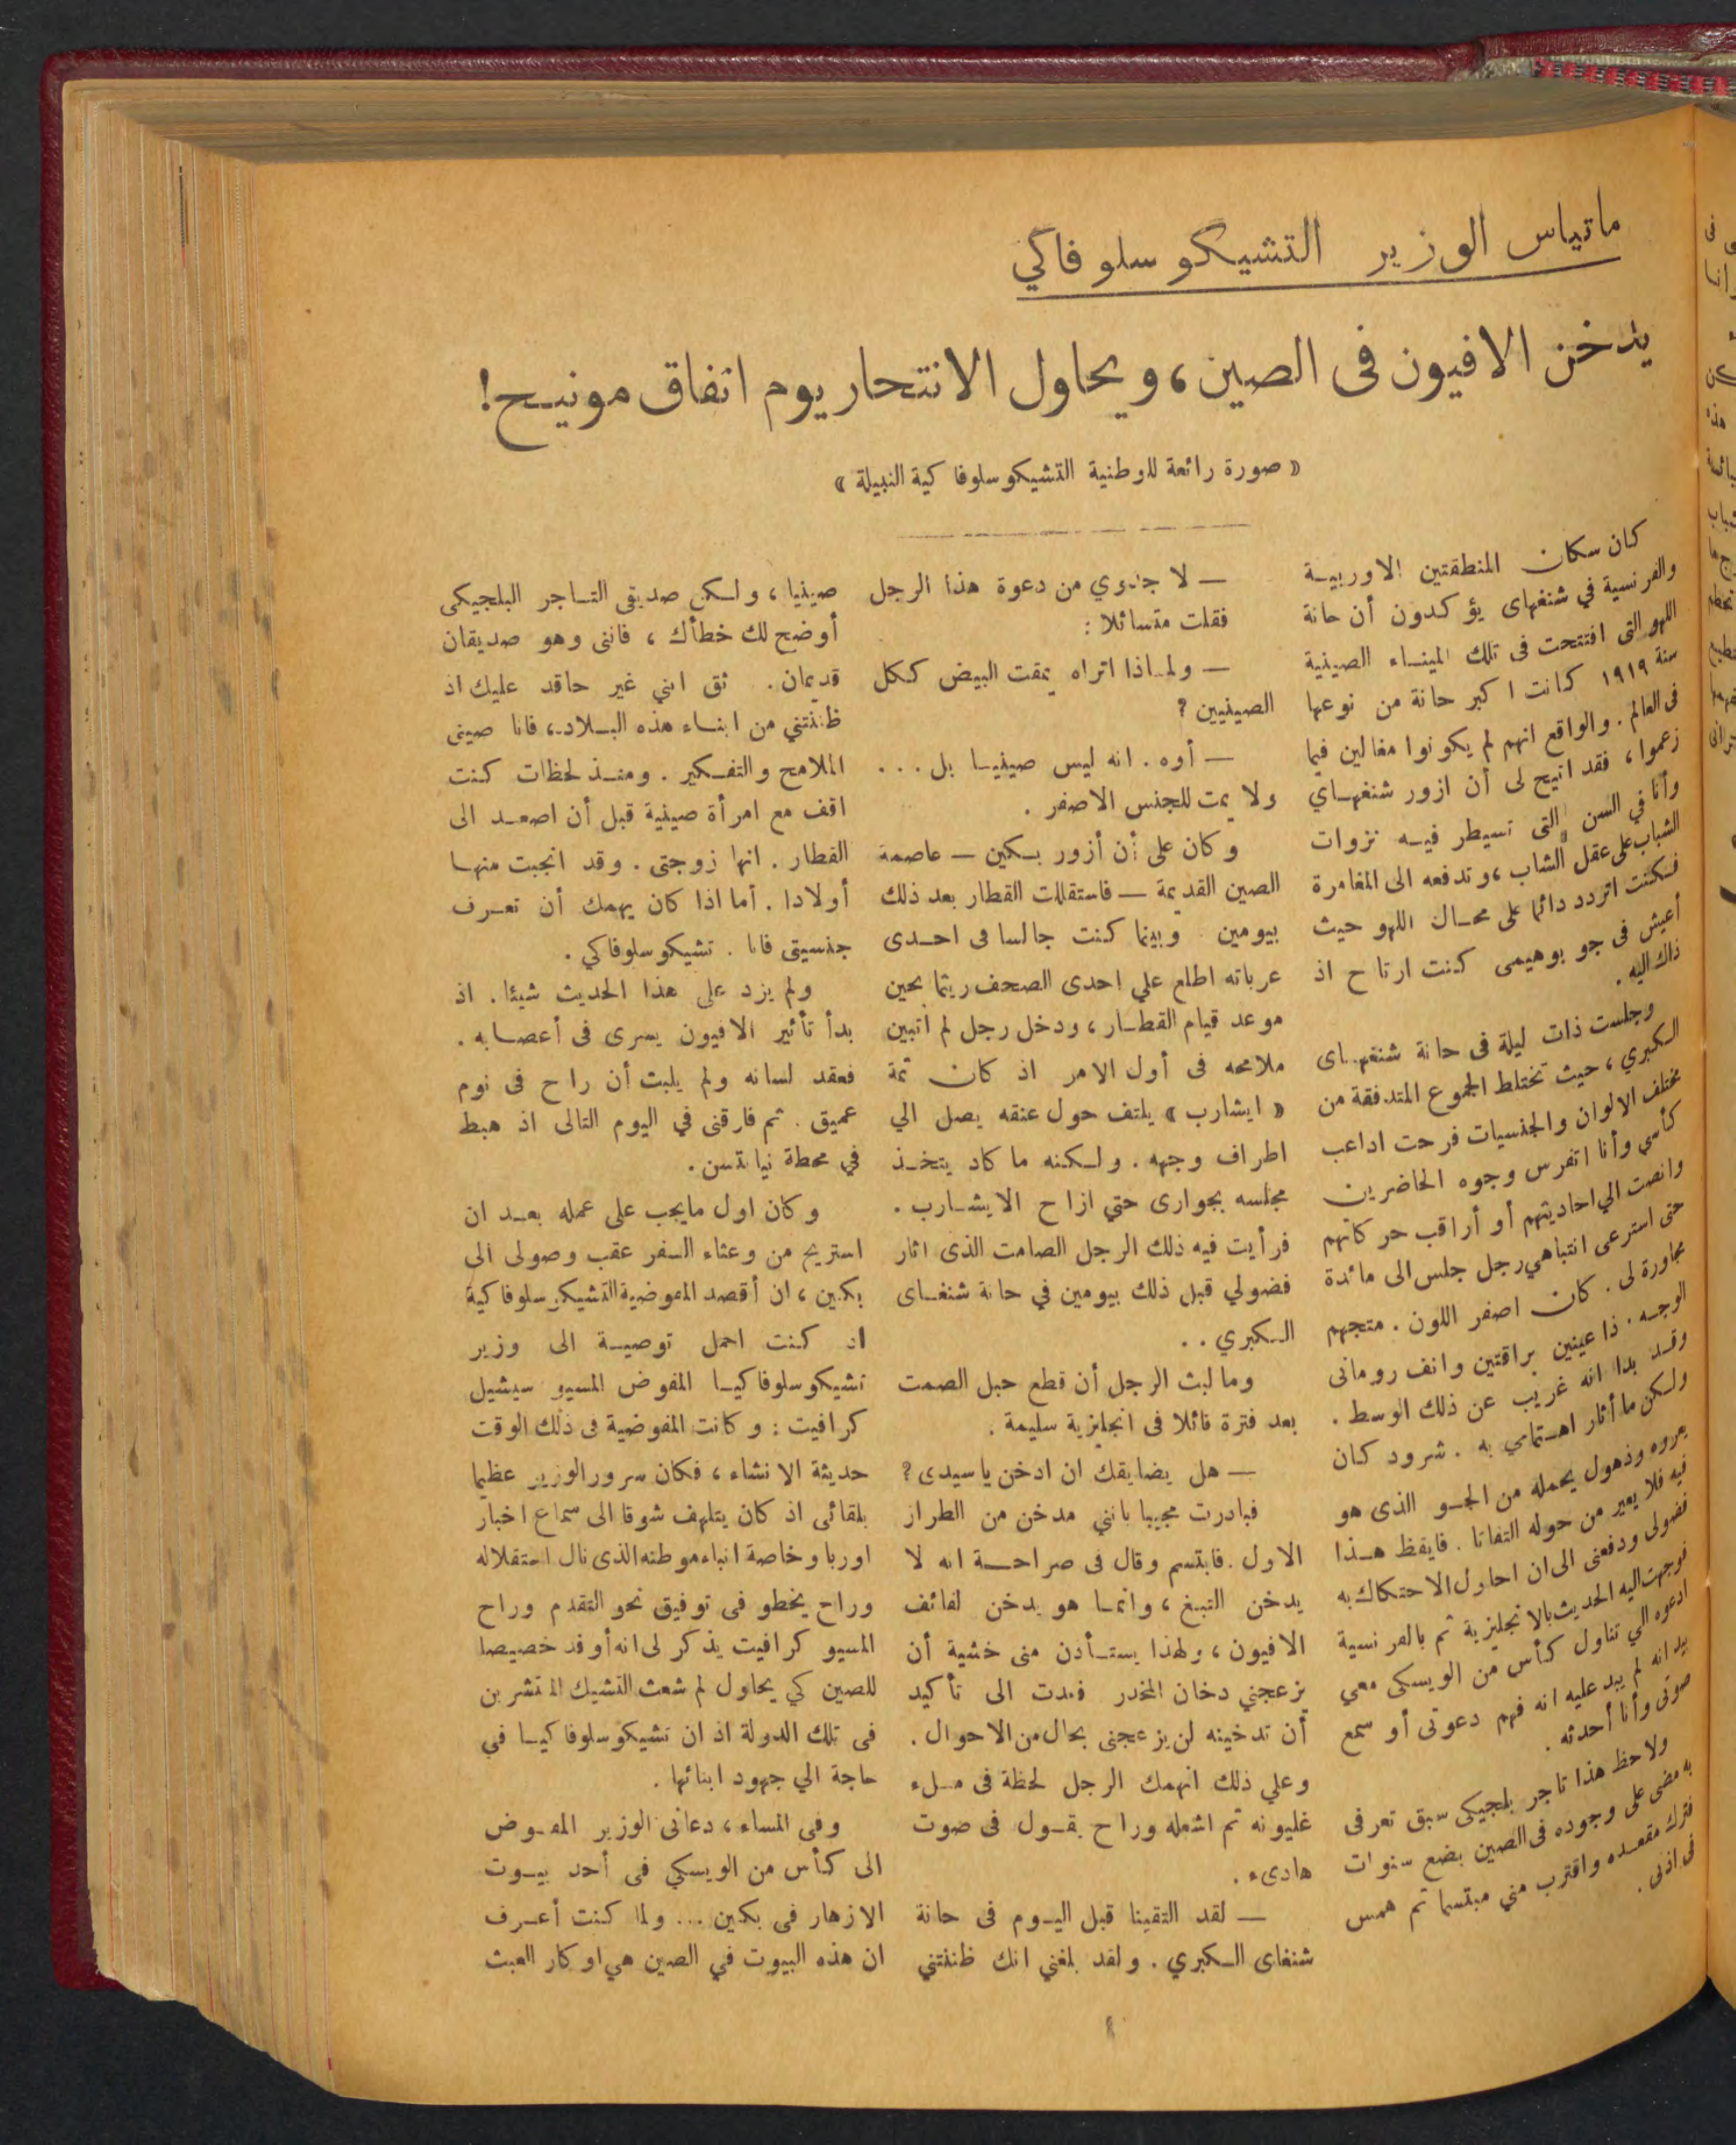 ماتياس الوزير التشيكو سلوفاكي
يدخن الافيون فى الصين، ويحاول الانتحار يوم اتفاق مونيخ!
« صورة رائعة للوطنية التشيكوسلوفاكية النبيلة »
كان سكان المنطقتين الاوربية
والفرنسية في شنغهاى يؤكدون أن حانة
اللهو التى افتتحت فى تلك الميناء الصينية
سنة ١٩١٩ كانت اكبر حانة من نوعها
فى العالم . والواقع انهم لم يكونوا مغالين فيما
زعموا ، فقد اتيح لى أن ازور شنغهاي
وأنا في السن التى تسيطر فيه نزوات
الشباب على عقل الشاب ، وتدفعه الى المغامرة
فكنت اتردد دائما على محال اللهو حيث
أعيش فى جو بوهيمى كنت ارتاح اذ
ذاك اليه .
وجلست ذات ليلة فى حانة شنغهاى
الكبري ، حيث تختلط الجموع المتدفقة من
مختلف الالوان والجنسيات فرحت اداعب
كأسي وأنا اتفرس وجوه الحاضرين
وانصت الي احاديثهم أو أراقب حركاتهم
حتى استرعى انتباهي رجل جلس الى مائدة
مجاورة لى . كان اصفر اللون . متجهم
الوجه . ذا عينين براقتين وانف رومانى
وقد بدا انه غريب عن ذلك الوسط .
ولكن ما أثار اهتمامي به . شرود كان
يعروه وذهول يحمله من الجو الذى هو
فيه فلا يعير من حوله التفاتا . فايقظ هذا
فضولى ودفعنى الى ان احاول الاحتكاك به
فوجهت اليه الحديث بالانجليزية ثم بالفرنسية
ادعوه الي تناول كأس من الويسكى معي
بيد انه لم يبد عليه انه فهم دعوتى أو سمع
صوتى وأنا أحدثه .
ولاحظ هذا تاجر بلجيكى سبق تعرفى
به مضى على وجوده فى الصين بضع سنوات
فترك مقعده واقترب مني مبتسما ثم همس
فى اذنى .
— لا جدوي من دعوة هذا الرجل
فقلت متسائلا :
— ولماذا اتراه يمقت البيض ككل
الصينيين ؟
— أوه . انه ليس صينيا بل . . .
ولا يمت للجنس الاصفر .
وكان على أن أزور بكين — عاصمة
الصين القديمة — فاستقللت القطار بعد ذلك
بيومين . وبينما كنت جالسا فى احدى
عرباته اطلع علي احدى الصحف ريثما يحين
موعد قيام القطار ، ودخل رجل لم اتبين
ملامحه فى أول الامر اذ كان ثمة
« ايشارب » يلتف حول عنقه يصل الي
اطراف وجهه . ولكنه ما كاد يتخذ
مجلسه بجوارى حتي ازاح الايشارب .
فرأيت فيه ذلك الرجل الصامت الذى اثار
فضولي قبل ذلك بيومين في حانة شنغاى
الكبري . .
وما لبث الرجل أن قطع حبل الصمت
بعد فترة قائلا فى انجليزية سليمة .
— هل يضايقك ان ادخن يا سيدى ؟
فبادرت مجيبا بانني مدخن من الطراز
الاول . فابتسم وقال فى صراحة انه لا
يدخن التبغ ، وانما هو يدخن لفائف
الافيون ، ولهذا يستأذن منى خشية أن
يزعجني دخان المخدر فعدت الى تأكيد
أن تدخينه لن يزعجنى بحال من الاحوال .
وعلي ذلك انهمك الرجل لحظة فى ملء
غليونه ثم اشعله وراح يقول فى صوت
هادىء .
— لقد التقينا قبل اليوم فى حانة
شنغاى الكبري . ولقد بلغني انك ظننتني
صينيا ، ولكن صديقى التاجر البلجيكى
أوضح لك خطأك ، فانني وهو صديقان
قديمان . ثق انني غير حاقد عليك اذ
ظننتني من ابناء هذه البلاد ، فانا صينى
الملامح والتفكير . ومنذ لحظات كنت
اقف مع امرأة صينية قبل أن اصعد الى
القطار . انها زوجتى . وقد انجبت منها
أولادا . أما اذا كان يهمك أن تعرف
جنسيتى فانا . تشيكوسلوفاكي .
ولم يزد على هذا الحديث شيئا . اذ
بدأ تأثير الافيون يسرى فى أعصابه .
فعقد لسانه ولم يلبث أن راح فى نوم
عميق . ثم فارقنى في اليوم التالى اذ هبط
في محطة نيانتسن .
وكان اول مايجب على عمله بعد ان
استريح من وعثاء السفر عقب وصولى الى
بكين ، ان أقصد المفوضية التشيكوسلوفاكية
اذ كنت احمل توصية الى وزير
تشيكوسلوفاكيا المفوض المسيو سيشيل
كرافيت : وكانت المفوضية فى ذلك الوقت
حديثة الانشاء ، فكان سرور الوزير عظيما
بلقائى اذ كان يتلهف شوقا الى سماع اخبار
اوربا وخاصة انباء موطنه الذى نال استقلاله
وراح يخطو فى توفيق نحو التقدم وراح
المسيو كرافيت يذكر لى انه أوفد خصيصا
للصين كي يحاول لم شعث التشيك المنتشرين
فى تلك الدولة اذ ان تشيكوسلوفاكيا في
حاجة الي جهود ابنائها .
وفى المساء ، دعانى الوزير المفوض
الى كأس من الويسكي فى أحد بيوت
الازهار فى بكين ... ولما كنت أعرف
ان هذه البيوت في الصين هي اوكار العبث
٨